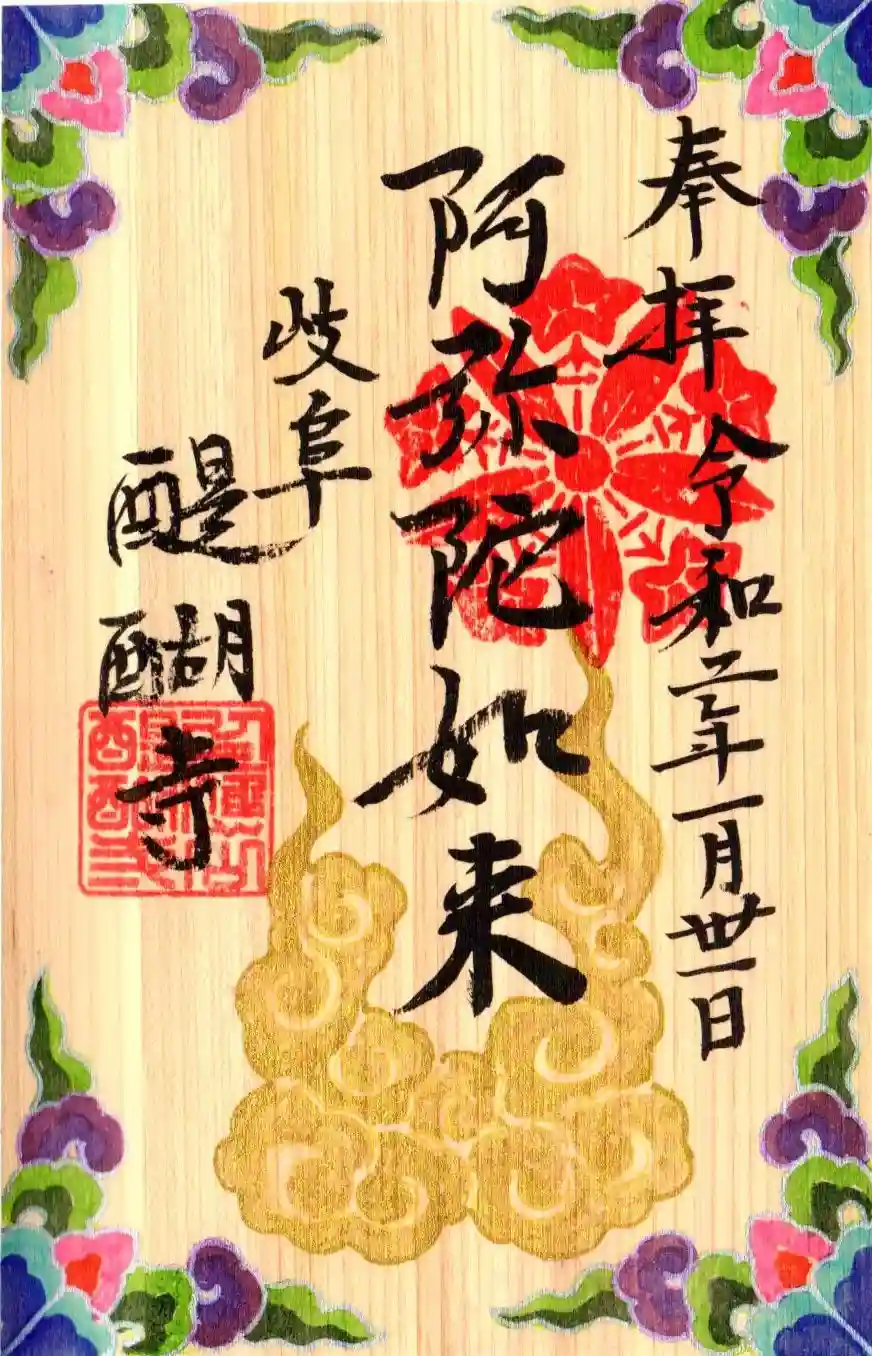 奉拝 令和二年一月卅一日
阿弥陀如来
岐阜
醍醐寺